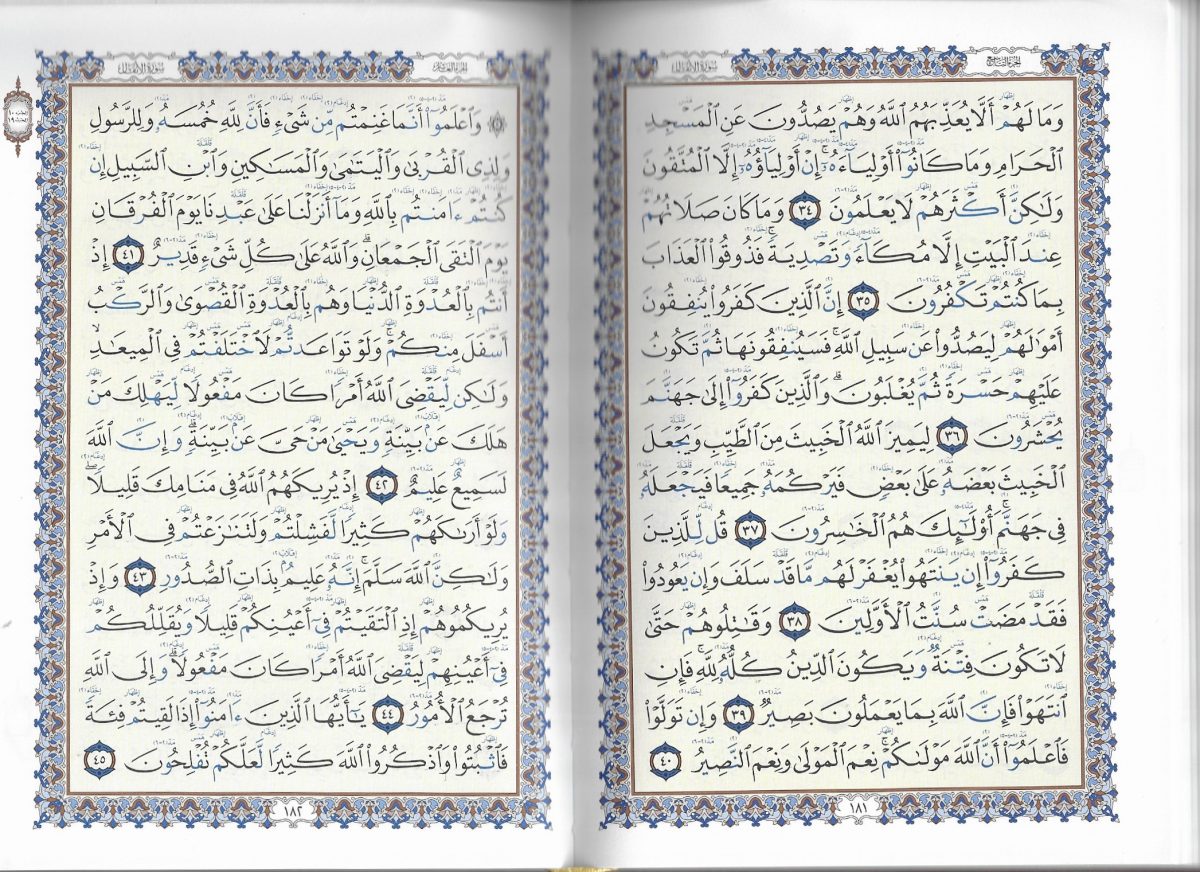 الجزء التاسع
سورة الأنفال
وَمَا لَهُمْ أَلَّا يُعَذِّبَهُمُ ٱللَّهُ وَهُمْ يَصُدُّونَ عَنِ ٱلْمَسْجِدِ
ٱلْحَرَامِ وَمَا كَانُوٓا۟ أَوْلِيَآءَهُۥٓ ۚ إِنْ أَوْلِيَآؤُهُۥٓ إِلَّا ٱلْمُتَّقُونَ
وَلَـٰكِنَّ أَكْثَرَهُمْ لَا يَعْلَمُونَ ٣٤ وَمَا كَانَ صَلَاتُهُمْ
عِندَ ٱلْبَيْتِ إِلَّا مُكَآءً وَتَصْدِيَةً ۚ فَذُوقُوا۟ ٱلْعَذَابَ
بِمَا كُنتُمْ تَكْفُرُونَ ٣٥ إِنَّ ٱلَّذِينَ كَفَرُوا۟ يُنفِقُونَ
أَمْوَٰلَهُمْ لِيَصُدُّوا۟ عَن سَبِيلِ ٱللَّهِ ۚ فَسَيُنفِقُونَهَا ثُمَّ تَكُونُ
عَلَيْهِمْ حَسْرَةً ثُمَّ يُغْلَبُونَ ۗ وَٱلَّذِينَ كَفَرُوٓا۟ إِلَىٰ جَهَنَّمَ
يُحْشَرُونَ ٣٦ لِيَمِيزَ ٱللَّهُ ٱلْخَبِيثَ مِنَ ٱلطَّيِّبِ وَيَجْعَلَ
ٱلْخَبِيثَ بَعْضَهُۥ عَلَىٰ بَعْضٍ فَيَرْكُمَهُۥ جَمِيعًا فَيَجْعَلَهُۥ
فِى جَهَنَّمَ ۚ أُو۟لَـٰٓئِكَ هُمُ ٱلْخَـٰسِرُونَ ٣٧ قُل لِّلَّذِينَ
كَفَرُوٓا۟ إِن يَنتَهُوا۟ يُغْفَرْ لَهُم مَّا قَدْ سَلَفَ وَإِن يَعُودُوا۟
فَقَدْ مَضَتْ سُنَّتُ ٱلْأَوَّلِينَ ٣٨ وَقَـٰتِلُوهُمْ حَتَّىٰ
لَا تَكُونَ فِتْنَةٌ وَيَكُونَ ٱلدِّينُ كُلُّهُۥ لِلَّهِ ۚ فَإِنِ
ٱنتَهَوْا۟ فَإِنَّ ٱللَّهَ بِمَا يَعْمَلُونَ بَصِيرٌ ٣٩ وَإِن تَوَلَّوْا۟
فَٱعْلَمُوٓا۟ أَنَّ ٱللَّهَ مَوْلَىٰكُمْ ۚ نِعْمَ ٱلْمَوْلَىٰ وَنِعْمَ ٱلنَّصِيرُ ٤٠
١٨١
الجزء العاشر
سورة الأنفال
۞ وَٱعْلَمُوٓا۟ أَنَّمَا غَنِمْتُم مِّن شَىْءٍ فَأَنَّ لِلَّهِ خُمُسَهُۥ وَلِلرَّسُولِ
وَلِذِى ٱلْقُرْبَىٰ وَٱلْيَتَـٰمَىٰ وَٱلْمَسَـٰكِينِ وَٱبْنِ ٱلسَّبِيلِ إِن
كُنتُمْ ءَامَنتُم بِٱللَّهِ وَمَآ أَنزَلْنَا عَلَىٰ عَبْدِنَا يَوْمَ ٱلْفُرْقَانِ
يَوْمَ ٱلْتَقَى ٱلْجَمْعَانِ ۗ وَٱللَّهُ عَلَىٰ كُلِّ شَىْءٍ قَدِيرٌ ٤١ إِذْ
أَنتُم بِٱلْعُدْوَةِ ٱلدُّنْيَا وَهُم بِٱلْعُدْوَةِ ٱلْقُصْوَىٰ وَٱلرَّكْبُ
أَسْفَلَ مِنكُمْ ۚ وَلَوْ تَوَاعَدتُّمْ لَٱخْتَلَفْتُمْ فِى ٱلْمِيعَـٰدِ ۙ
وَلَـٰكِن لِّيَقْضِىَ ٱللَّهُ أَمْرًا كَانَ مَفْعُولًا لِّيَهْلِكَ مَنْ
هَلَكَ عَنۢ بَيِّنَةٍ وَيَحْيَىٰ مَنْ حَىَّ عَنۢ بَيِّنَةٍ ۗ وَإِنَّ ٱللَّهَ
لَسَمِيعٌ عَلِيمٌ ٤٢ إِذْ يُرِيكَهُمُ ٱللَّهُ فِى مَنَامِكَ قَلِيلًا ۖ
وَلَوْ أَرَىٰكَهُمْ كَثِيرًا لَّفَشِلْتُمْ وَلَتَنَـٰزَعْتُمْ فِى ٱلْأَمْرِ
وَلَـٰكِنَّ ٱللَّهَ سَلَّمَ ۗ إِنَّهُۥ عَلِيمٌۢ بِذَاتِ ٱلصُّدُورِ ٤٣ وَإِذْ
يُرِيكُمُوهُمْ إِذِ ٱلْتَقَيْتُمْ فِىٓ أَعْيُنِكُمْ قَلِيلًا وَيُقَلِّلُكُمْ
فِىٓ أَعْيُنِهِمْ لِيَقْضِىَ ٱللَّهُ أَمْرًا كَانَ مَفْعُولًا ۗ وَإِلَى ٱللَّهِ
تُرْجَعُ ٱلْأُمُورُ ٤٤ يَـٰٓأَيُّهَا ٱلَّذِينَ ءَامَنُوٓا۟ إِذَا لَقِيتُمْ فِئَةً
فَٱثْبُتُوا۟ وَٱذْكُرُوا۟ ٱللَّهَ كَثِيرًا لَّعَلَّكُمْ تُفْلِحُونَ ٤٥
١٨٢